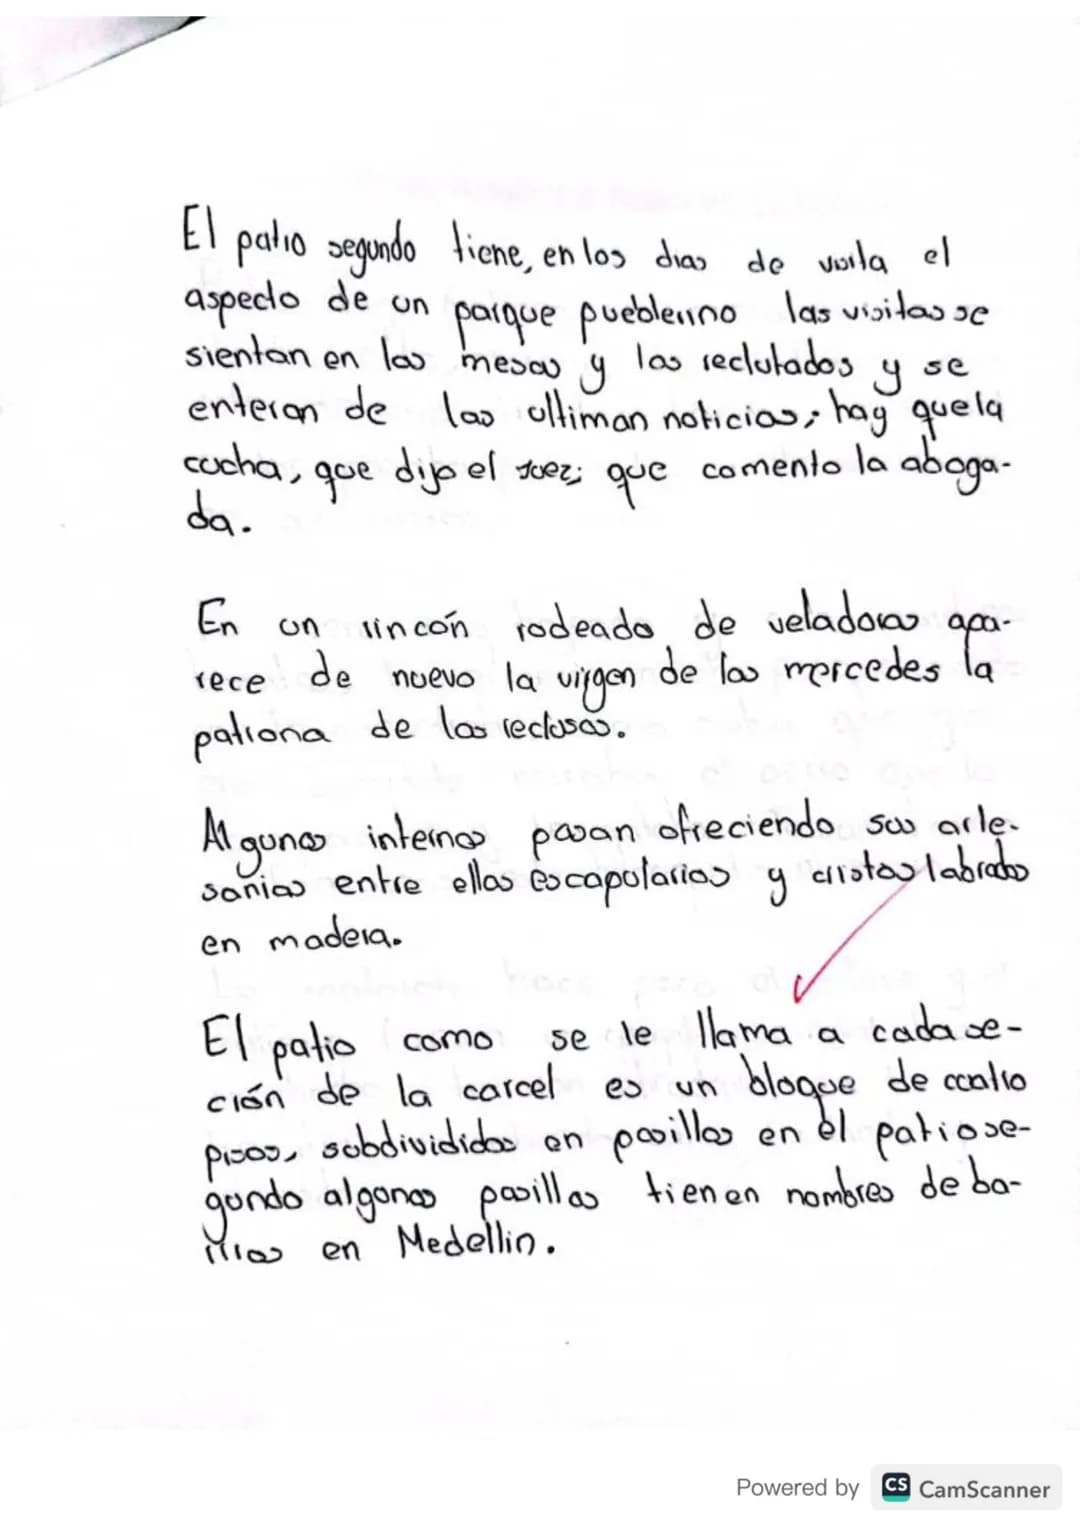 El patio segundo tiene, en los dias de visita el
aspecto de un parque pueblerino las visitas se
sientan en las mesas y los reclutados y se
enteran de las ultiman noticias; hay que la
cucha, que dijo el juez; que comento la aboga-
da.
En un rincón rodeado de veladoras apa-
rece de nuevo la virgen de las mercedes la
patrona de las reclusas.
Algunos internos pasan ofreciendo sus arte-
sanias entre ellas escapularios y cristos labrados
en madera.
El patio como se le llama a cada se-
ción de la carcel es un bloque de cuatro
pisos, subdivididos en pasillos en el patio se-
gundo algunos pasillos tienen nombres de ba-
rrios en Medellin.
Powered by CS CamScanner